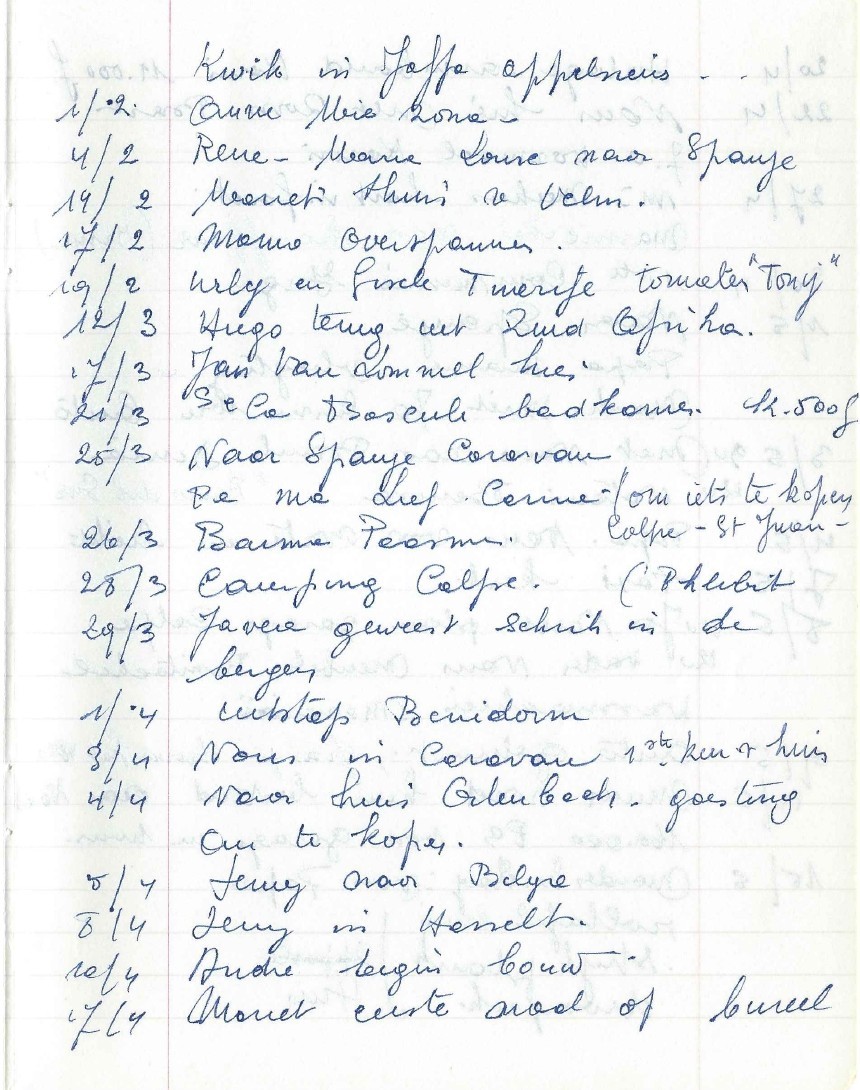 Kwik in Jaffa appelsiens - -
1/2 Anne Mia zona -
4/2 Rene - Marie Louise naar Spanje
14/2 thuis v Velm.
17/2 Moma overspannen.
19/2 en Gisele Tenerife tomaten "Tony"
12/3 Hugo terug uit Zuid Afrika.
17/3 Jan Van Lommel huis
21/3 Bascule badkamer. 12.500 f
25/3 Naar Spanje Caravan
Pa ma Lief Carine - /om iets te kopen
Calpe - St Juan -
26/3 Bouma
28/3 Camping Calpe. (Phlebit
29/3 Javea geweest schrik in de
bergen
1/4 uitstap Benidorm
3/4 Nous in Caravan 1ste keer v huis
4/4 Naar huis goesting
om te kopen.
5/4 Terug naar Belgie
8/4 Terug in Hasselt.
10/4 André begin bouw
17/4 Monet eerste of bureel